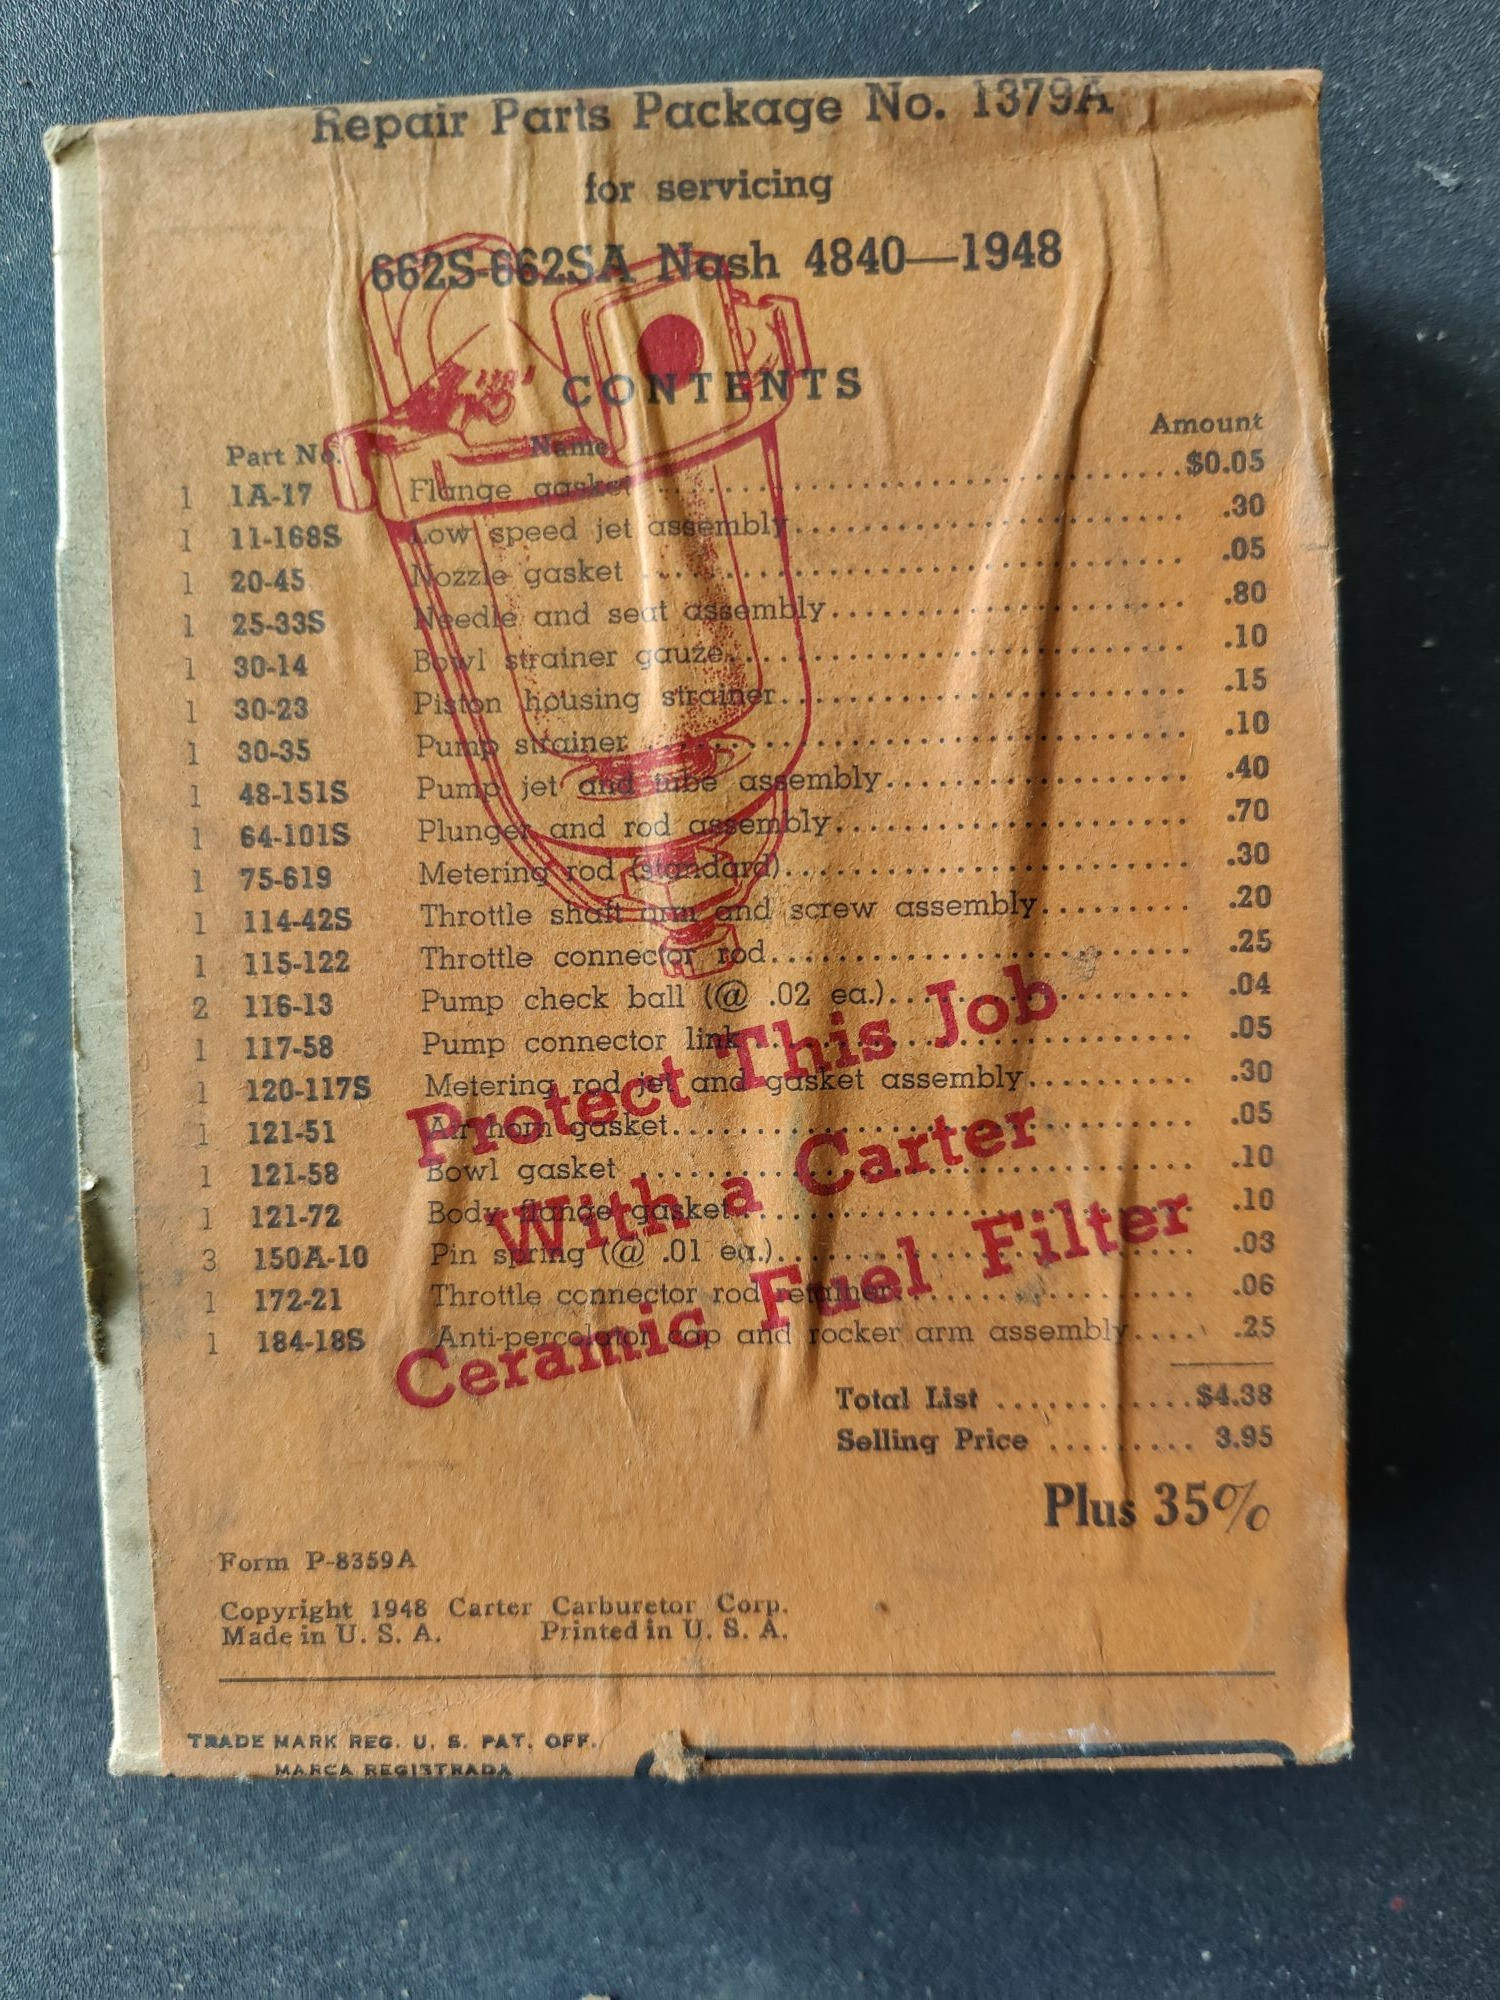 Repair Parts Package No. 1379A
for servicing
662S-662SA Nash 4840—1948
CONTENTS
Part No. Name Amount
1 1A-17 Flange gasket $0.05
1 11-168S Low speed jet assembly .30
1 20-45 Nozzle gasket .05
1 25-33S Needle and seat assembly .80
1 30-14 Bowl strainer gauze .10
1 30-23 Piston housing strainer .15
1 30-35 Pump strainer .10
1 48-151S Pump jet and tube assembly .40
1 64-101S Plunger and rod assembly .70
1 75-619 Metering rod (standard) .30
1 114-42S Throttle shaft arm and screw assembly .20
1 115-122 Throttle connector rod .25
2 116-13 Pump check ball (@ .02 ea.) .04
1 117-58 Pump connector link .05
1 120-117S Metering rod jet and gasket assembly .30
1 121-51 Air horn gasket .05
1 121-58 Bowl gasket .10
1 121-72 Body flange gasket .10
3 150A-10 Pin spring (@ .01 ea.) .03
1 172-21 Throttle connector rod retainer .06
1 184-18S Anti-percolator cap and rocker arm assembly .25
Protect This Job
With a Carter
Ceramic Fuel Filter
Total List $4.38
Selling Price 3.95
Plus 35%
Form P-8359A
Copyright 1948 Carter Carburetor Corp.
Made in U. S. A. Printed in U. S. A.
TRADE MARK REG. U. S. PAT. OFF.
MARCA REGISTRADA